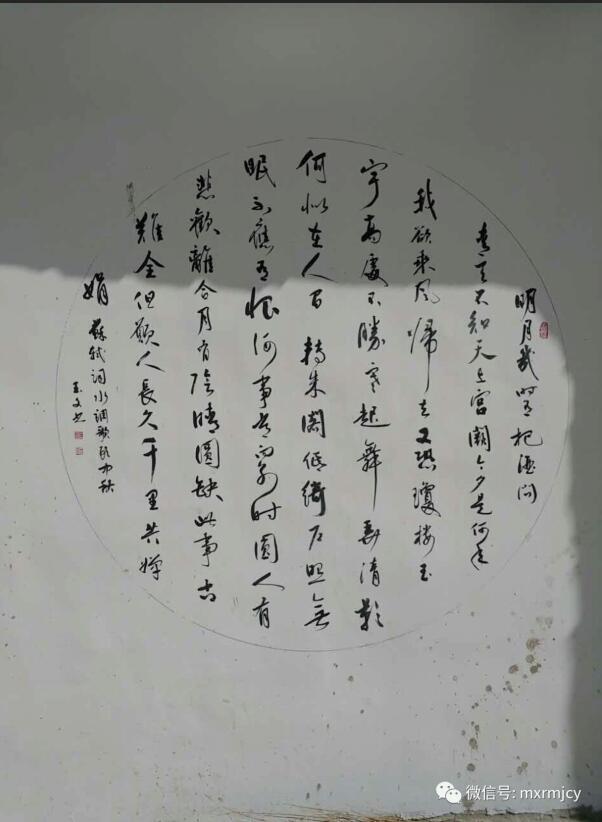 明月幾時有把酒問
青天不知天上宫闕今夕是何年
我欲乘風歸去又恐瓊樓玉
宇高處不勝寒起舞弄清影
何似在人间轉朱閣低綺户照無
眠不應有恨何事長向别时圆人有
悲歡離合月有陰晴圆缺此事古
難全但願人長久千里共嬋
娟
蘇軾词水調歌頭中秋
玉文书
微信号: mxrmjcy